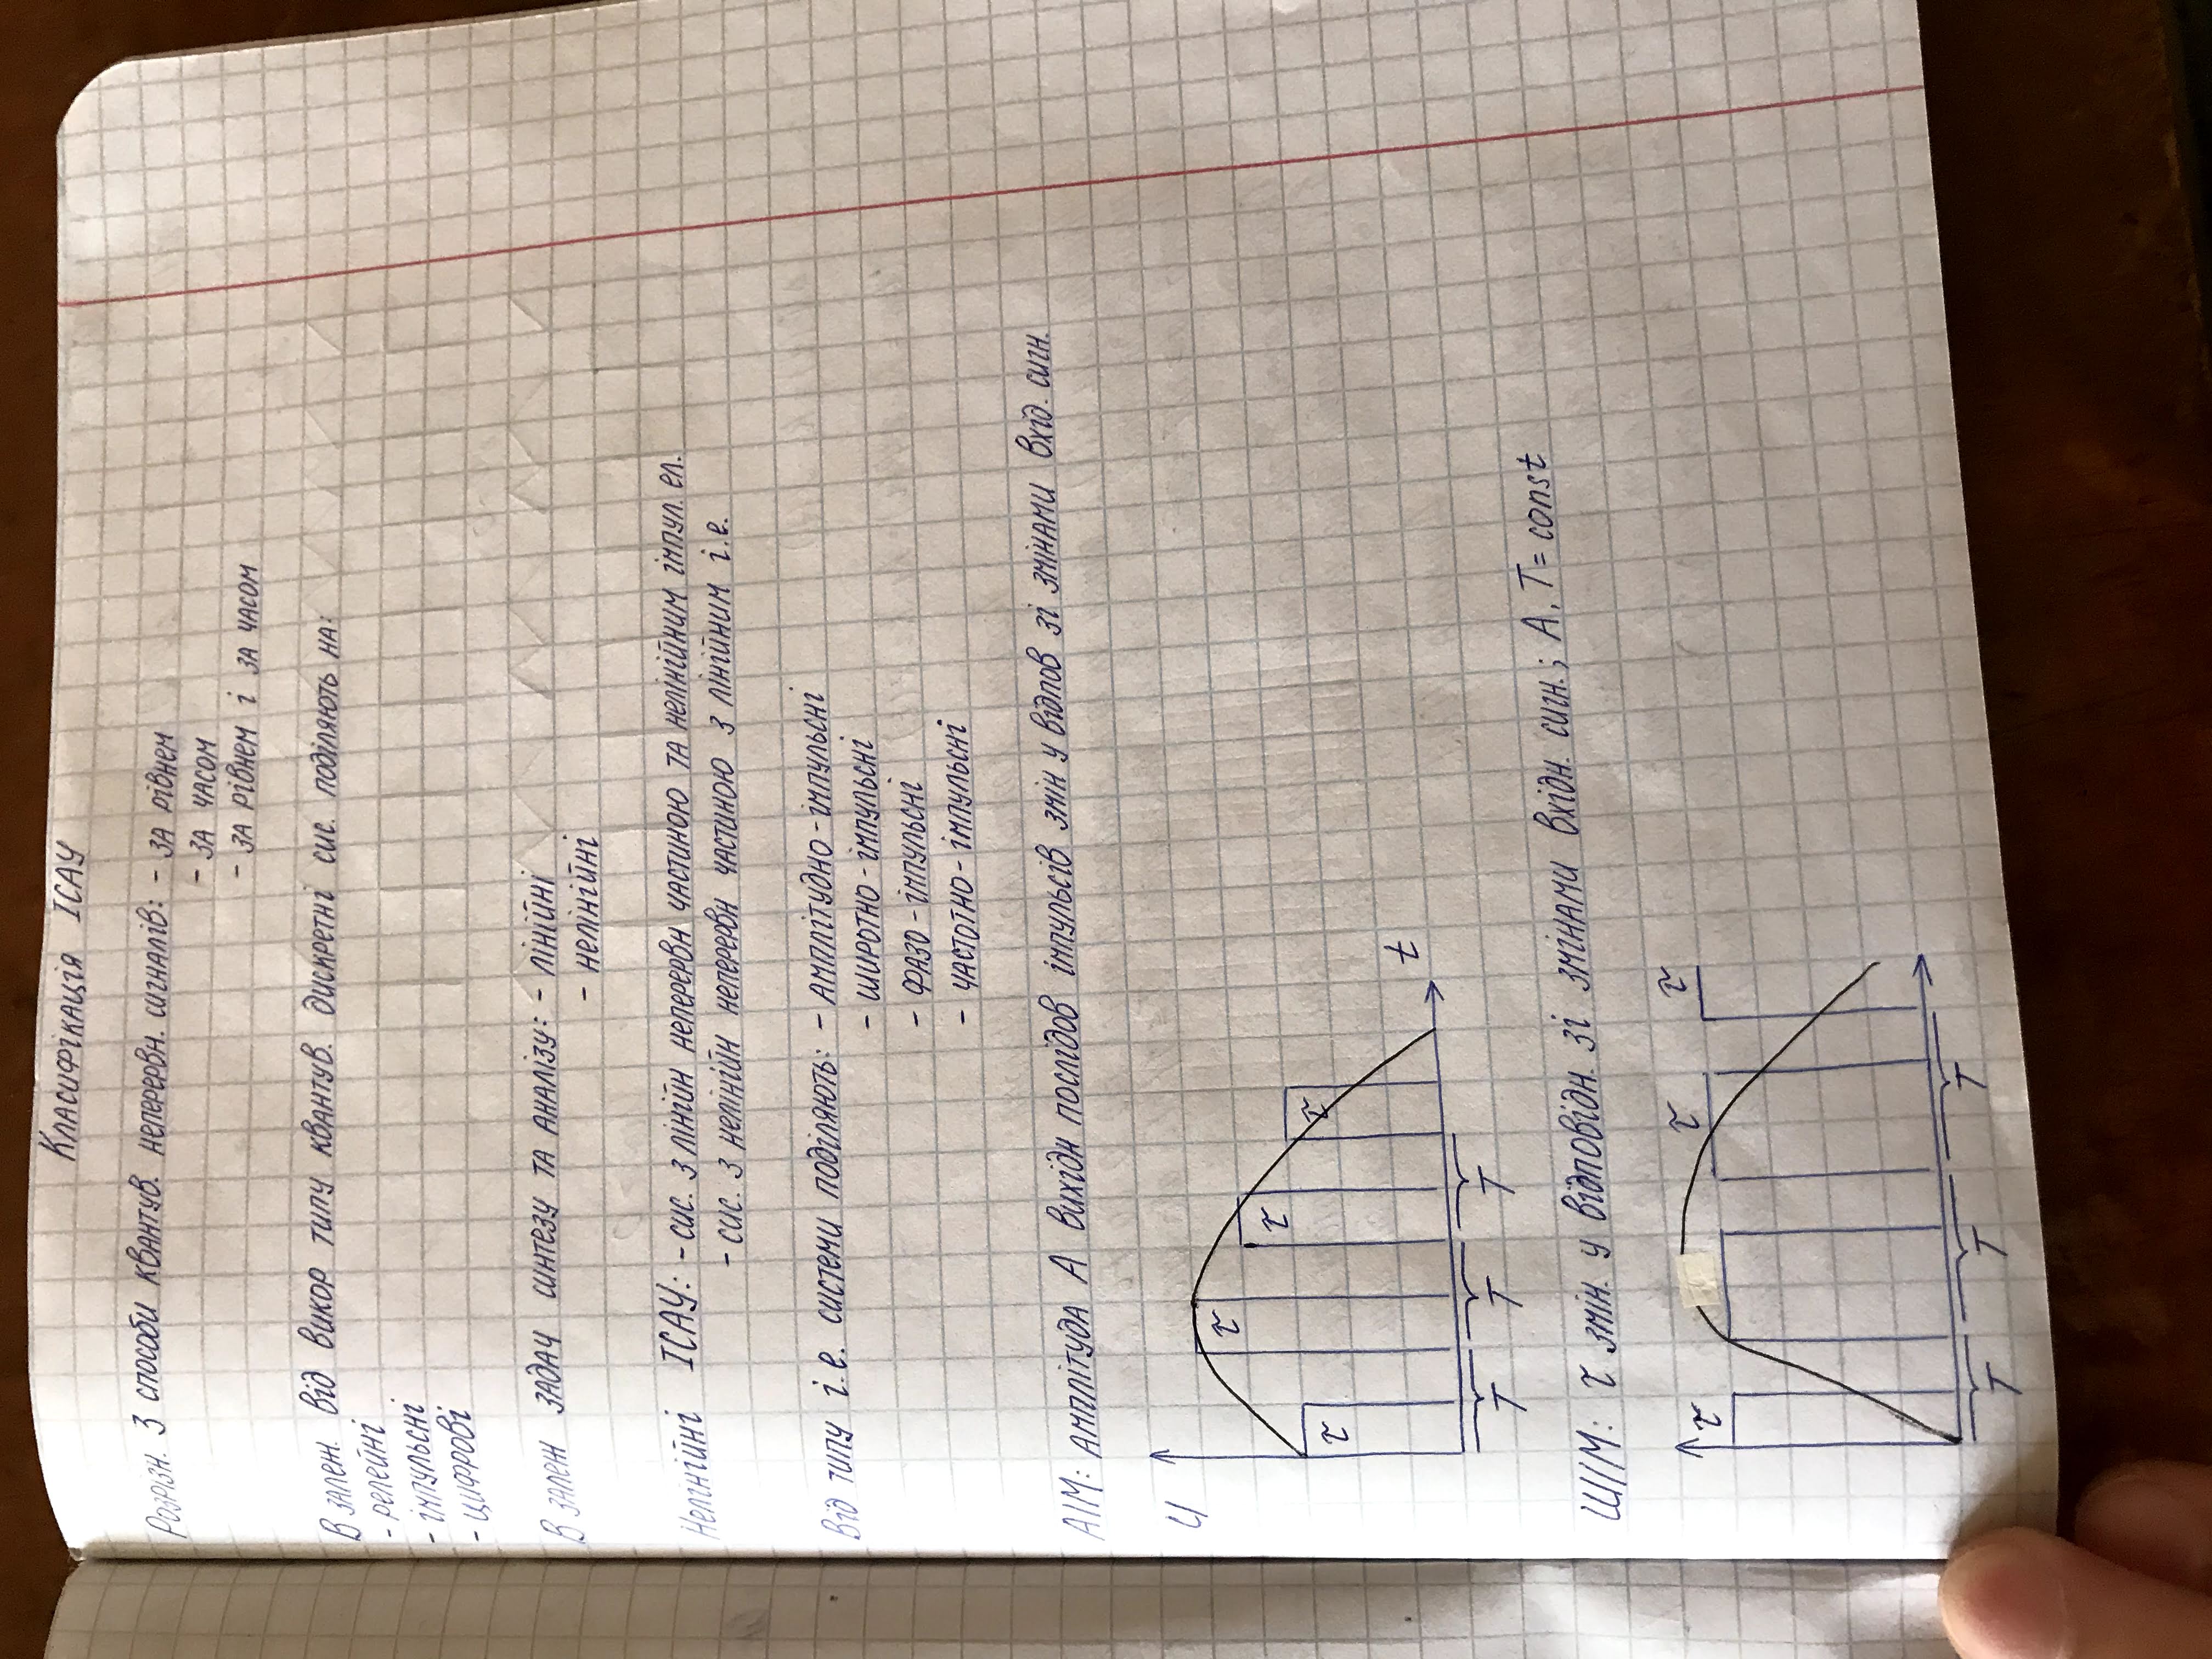 Класифікація ІСАУ
Розрізн. 3 способи квантув. неперервн. сигналів: - за рівнем
- за часом
- за рівнем і за часом
В залеж. від викор типу квантув. дискретні сис. поділяють на:
- релейні
- імпульсні
- цифрові
В залеж задач синтезу та аналізу: - лінійні
- нелінійні
Нелінійні ІСАУ: - сис. з лінійн неперервн частиною та нелінійним імпул. ел.
- сис. з нелінійн неперервн частиною з лінійним і.е.
Від типу і.е. системи поділяють: - амплітудно-імпульсні
- широтно-імпульсні
- фазо-імпульсні
- частотно-імпульсні
АІМ: амплітуда А вихідн послідов імпульсів змін у відпов зі змінами вхід. сигн.
U
τ
τ
τ
τ
t
T T T
ШІМ: τ змін. у відповідн. зі змінами вхідн. сигн.; А, T = const
τ τ τ
T T T